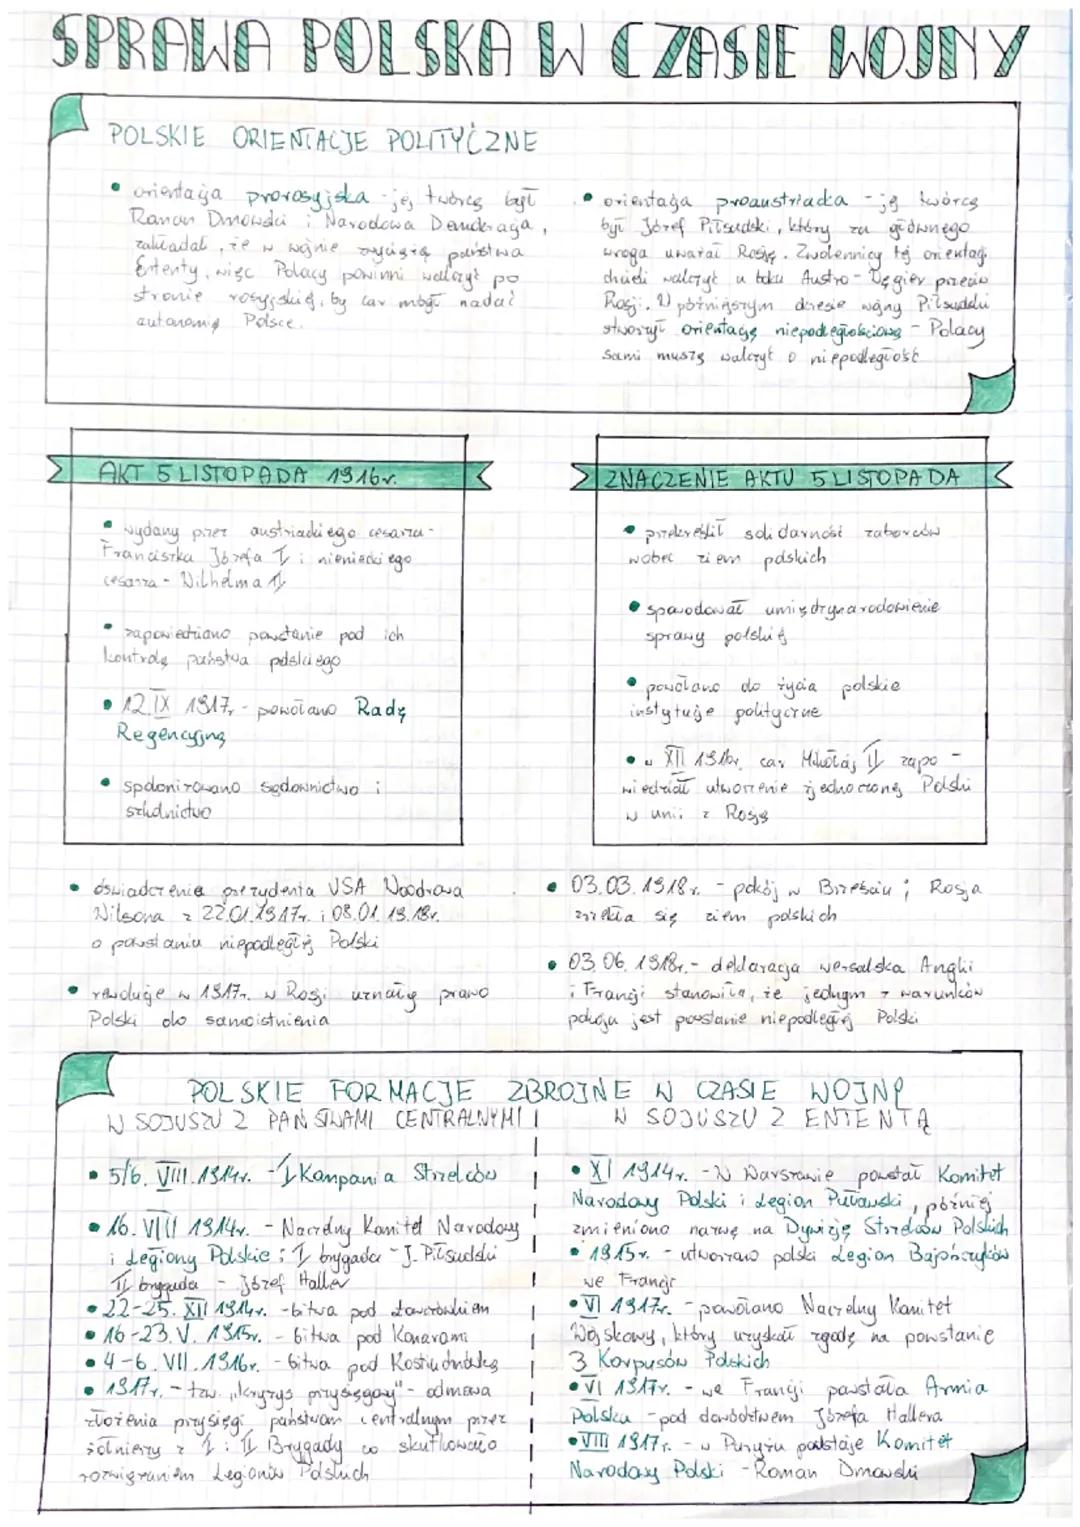 SPRAWA POLSKA W CZASIE WOJNY
POLSKIE ORIENTACJE POLITYCZNE
• orientacja prorosyjska - jej twórcą był
Roman Dmowski i Narodowa Demokracja,
zakładał, że w wojnie zwyciężą państwa
Ententy, więc Polacy powinni walczyć po
stronie rosyjskiej, by car mógł nadać
autonomię Polsce.
• orientacja proaustriacka - jej twórcą
był Józef Piłsudski, który za głównego
wroga uważał Rosję. Zwolennicy tej orientacji
chcieli walczyć u boku Austro-Węgier przeciw
Rosji. W późniejszym okresie wojny Piłsudski
stworzył orientację niepodległościową - Polacy
sami muszą walczyć o niepodległość
AKT 5 LISTOPADA 1916r.
• wydany przez austriackiego cesarza -
Franciszka Józefa I i niemieckiego
cesarza - Wilhelma II
• zapowiedziano powstanie pod ich
kontrolą państwa polskiego
• 12.IX 1917r. - powołano Radę
Regencyjną
• spolonizowano sądownictwo i
szkolnictwo
ZNACZENIE AKTU 5 LISTOPADA
• przekreślił solidarność zaborców
wobec ziem polskich
• spowodował umiędzynarodowienie
sprawy polskiej
• powołano do życia polskie
instytucje polityczne
• w XII 1916r. car Mikołaj II zapo-
wiedział utworzenie zjednoczonej Polski
w unii z Rosją
• oświadczenie prezydenta USA Woodrowa
Wilsona z 22.01.1917r. i 08.01.1918r.
o powstaniu niepodległej Polski
• rewolucje w 1917r. w Rosji uznały prawo
Polski do samoistnienia
• 03.03.1918r. - pokój w Brześciu; Rosja
zrzekła się ziem polskich
• 03.06.1918r. - deklaracja wersalska Anglii
i Francji stanowiła, że jednym z warunków
pokoju jest powstanie niepodległej Polski
POLSKIE FORMACJE ZBROJNE W CZASIE WOJNY
W SOJUSZU Z PAŃSTWAMI CENTRALNYMI
• 5/6. VIII.1914r. - I Kampania Strzelców
• 16. VIII 1914r. - Naczelny Komitet Narodowy
i Legiony Polskie: I brygada - J. Piłsudski
II brygada - Józef Haller
• 22-25. XII 1914r. - bitwa pod Łowczówkiem
• 16-23.V. 1915r. - bitwa pod Konarami
• 4-6. VII.1916r. - bitwa pod Kostiuchnówką
• 1917r. - tzw. „kryzys przysięgowy" - odmowa
złożenia przysięgi państwom centralnym przez
żołnierzy z I i II Brygady co skutkowało
rozwiązaniem Legionów Polskich
W SOJUSZU Z ENTENTĄ
• XI 1914r. - W Warszawie powstał Komitet
Narodowy Polski i Legion Puławski, później
zmieniono nazwę na Dywizję Strzelców Polskich
• 1915r. - utworzono polski Legion Bajończyków
we Francji
• VI 1917r. - powołano Naczelny Komitet
Wojskowy, który uzyskał zgodę na powstanie
3 Korpusów Polskich
• VI 1917r. - we Francji powstała Armia
Polska - pod dowództwem Józefa Hallera
• VIII 1917r. - w Paryżu powstaje Komitet
Narodowy Polski - Roman Dmowski